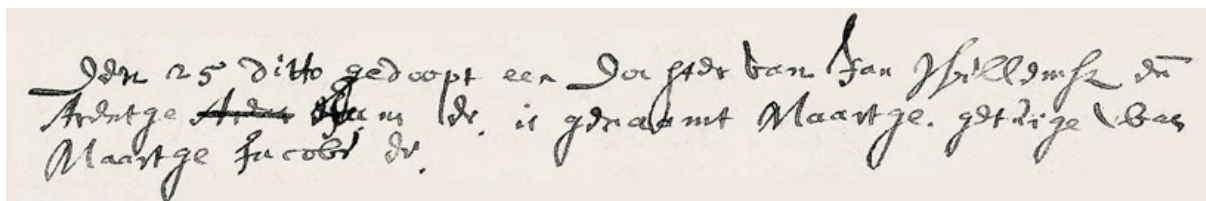 Den 25 ditto gedoopt een Dochter van Jan Willemsz en
Ariaentge dr. is genaamt Maartge. getuige was
Maartge Jacobs dr.